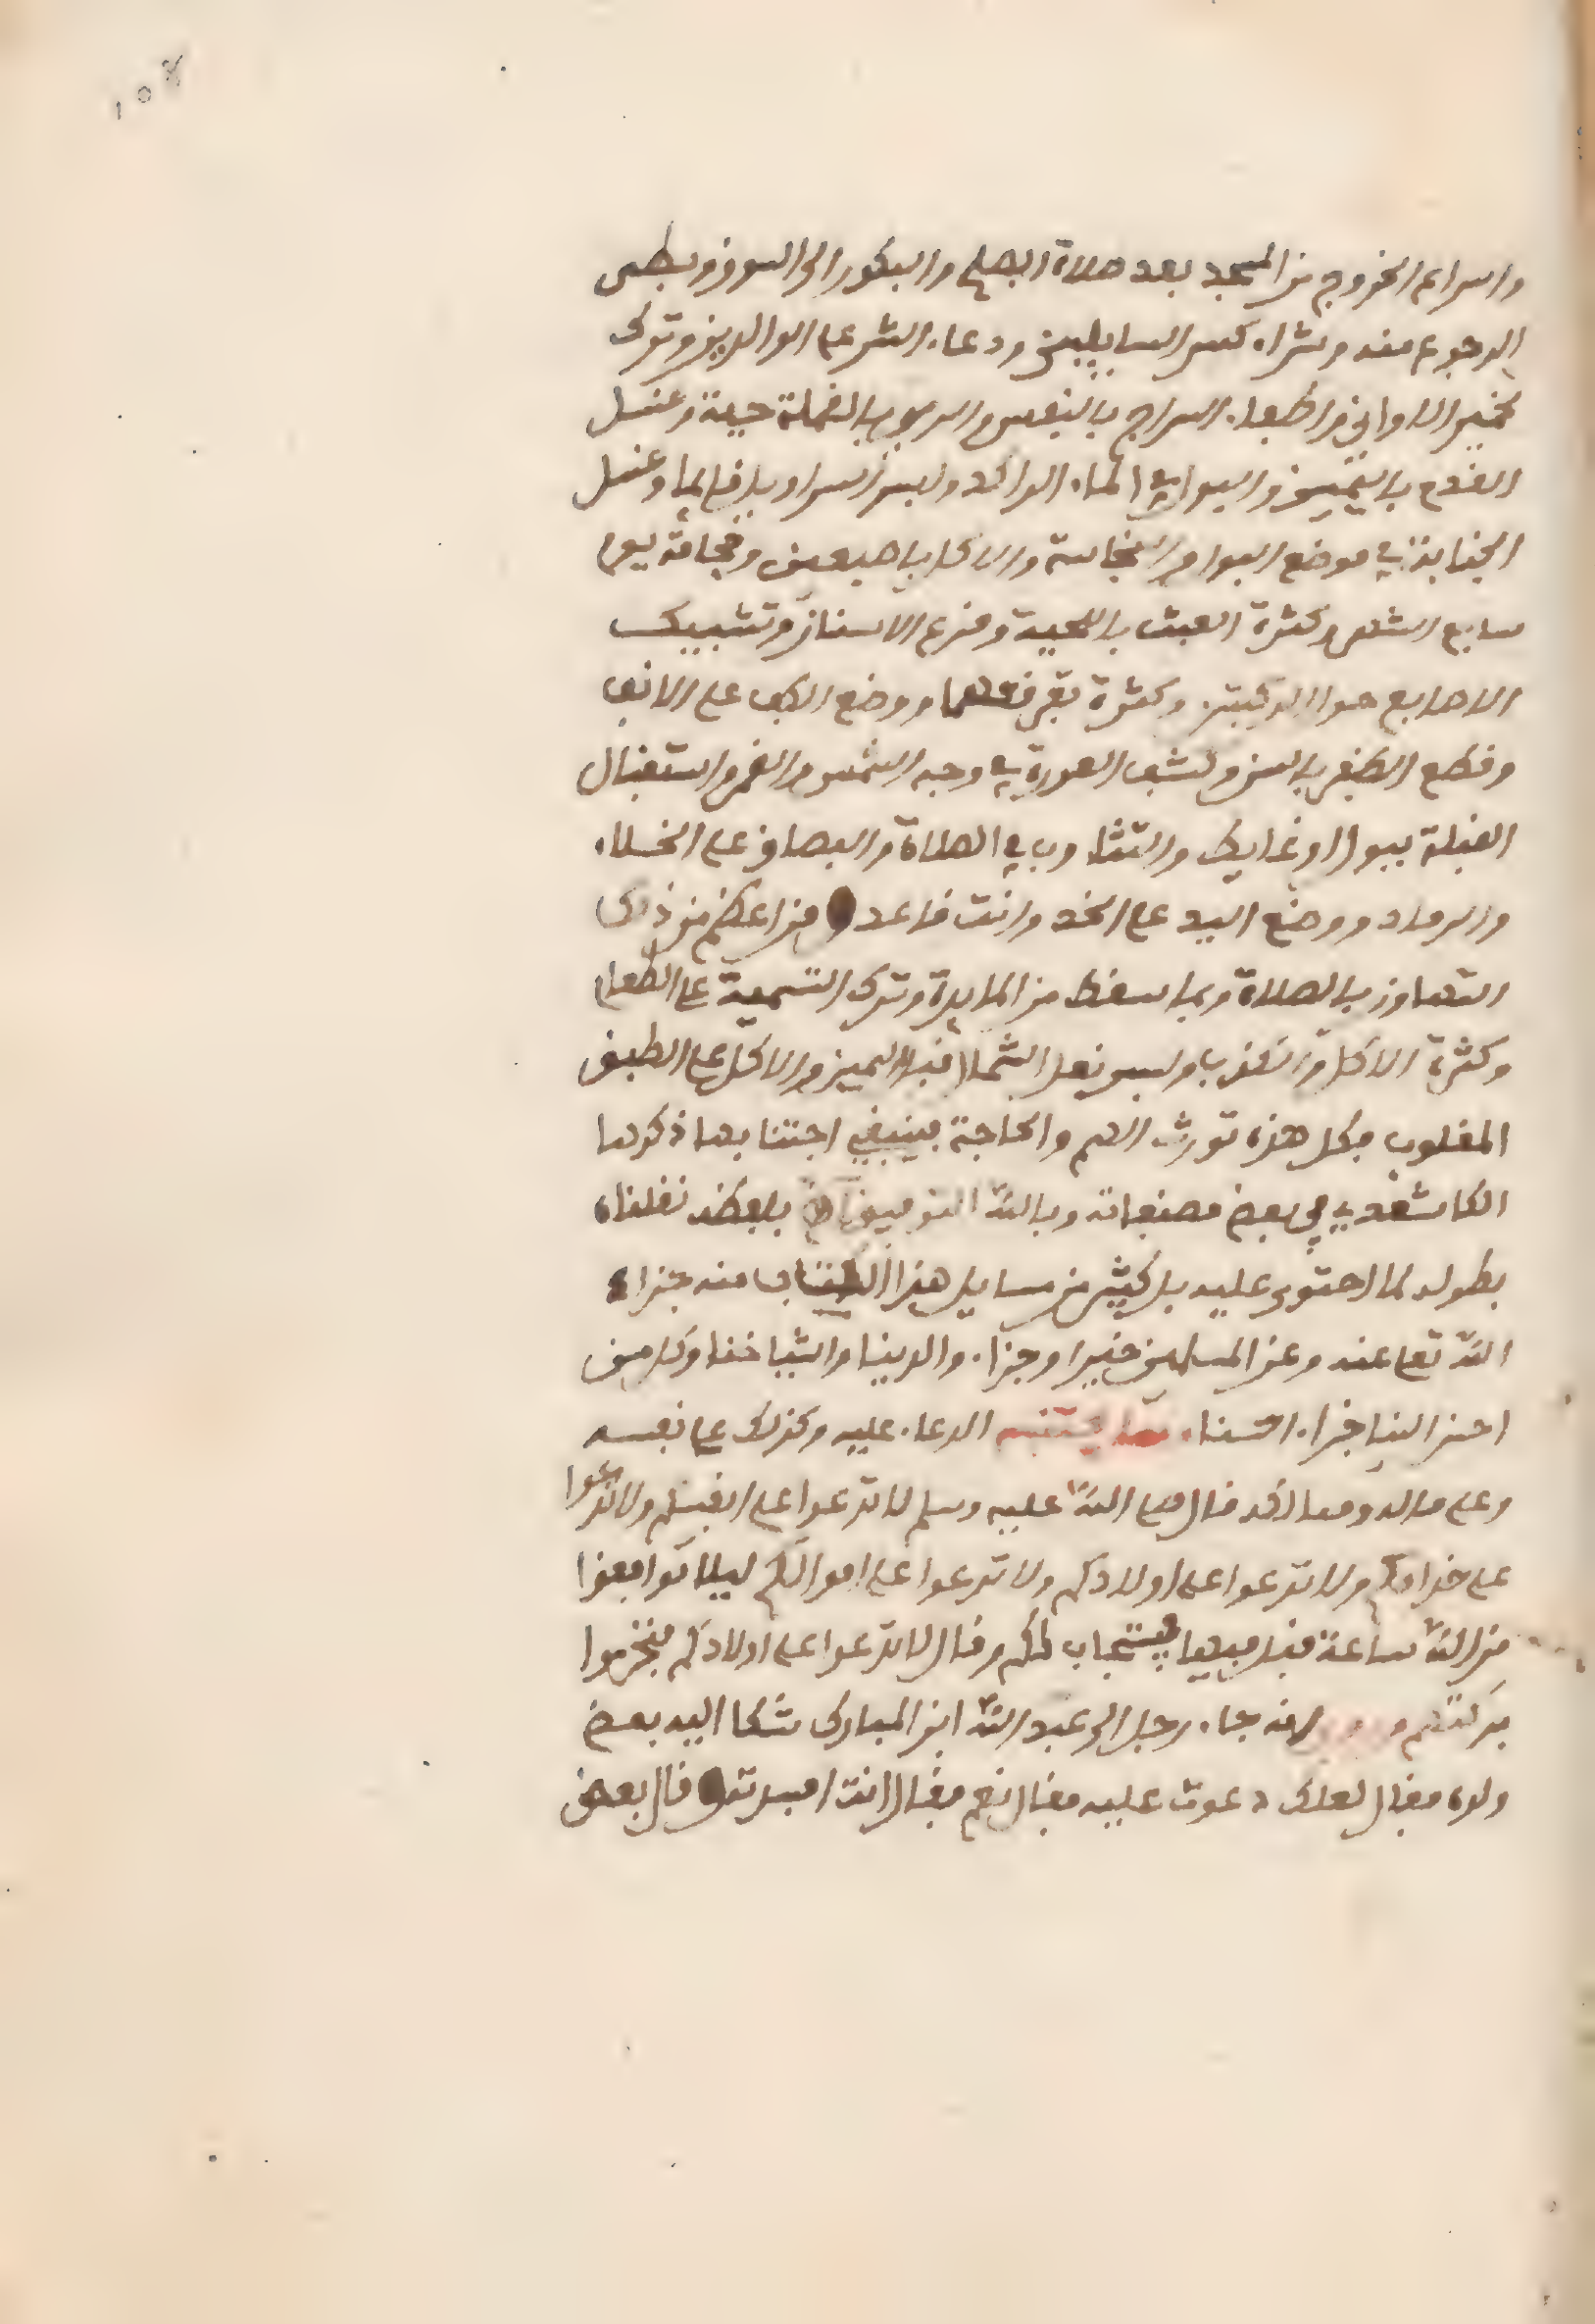 واسراع الخروج من المسجد بعد صلاة الصبح والبكور الى السوق وبطى
الرجوع منه وشراء كسر السايلين ودعاء الشر على الوالدين وترك
تخمير الاواني واطفاء السراج بالنفس والرمي بالقملة حية وغسل
القدم باليمين والبول في الماء الراكد ولبس السراويل قايما وغسل
الجنابة في موضع البول والنجاسة والاكل باصبعين وحجامة يوم
سابع الشهر وكثرة العبث باللحية وقرع الاسنان وتشبيك
الاصابع حول الركبتين وكثرة تفرقعها ووضع الكف على الانف
وقطع الظفر بالسن وكشف العورة في وجه الشمس والقمر واستقبال
القبلة ببول او غايط والتثاوب في الصلاة والبصاق على الخلاء
والرماد ووضع اليد على الخد وانت قاعد ومن اعظم من ذلك
التهاون بالصلاة وبما سقط من المايدة وترك التسمية على الطعام
وكثرة الاكل والكذب ولبس نعل الشمال قبل اليمين والاكل على الطبق
المقلوب فكل هذه تورث الهم والحاجة فينبغي اجتنابها ذكرها
الكاشغدي في بعض مصنفاته وبالله التوفيق بلفظه نقلناه
بطوله لما احتوى عليه بل كثير من مسايل هذا الكتاب منه جزاه
الله تعلى عنه وعن المسلمين خيرا وجزاء والدينا واشياخنا وكل من
احسن الينا جزاء احسناء الدعاء عليه وكذلك على نفسه
وعلى ماله ومما لكه فقال صلى الله عليه وسلم لا تدعوا على انفسكم ولا تدعوا
على خدامكم ولا تدعوا على اولادكم ولا تدعوا على اموالكم ليلا توافقوا
من الله ساعة قبل فيها فيستجاب لكم وقال لا تدعوا على اولادكم فتخرموا
بركتهم و انه جاء رجل الى عبد الله ابن المبارك شكا اليه بعض
ولده فقال لعلك دعوت عليه فقال نعم فقال انت افسدته قال بعض